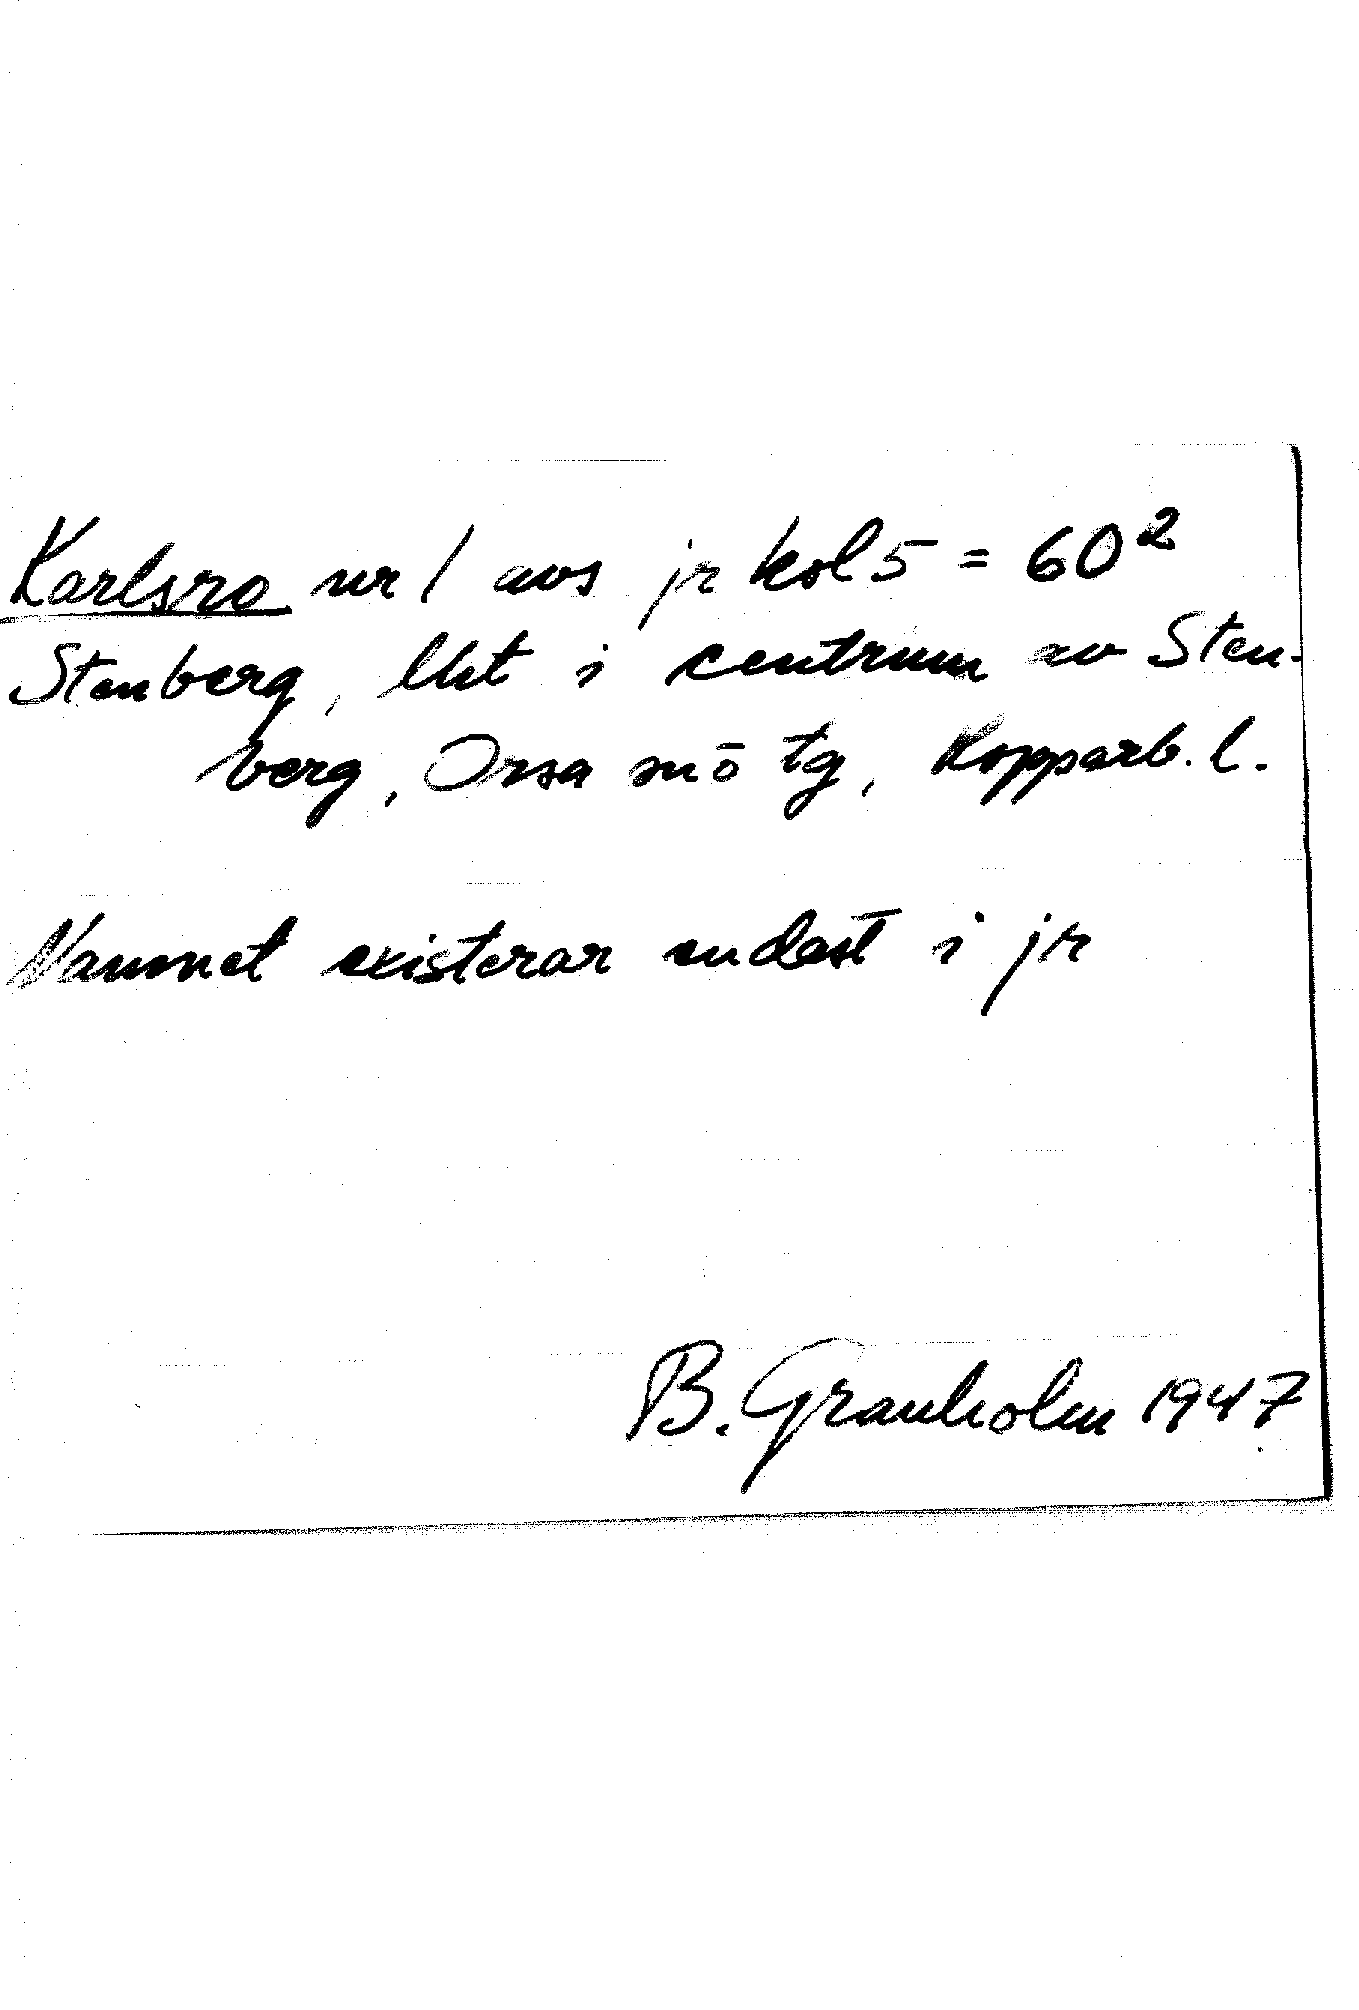 Karlsro nr 1 avs jr kol 5 = 60²
Stenberg, lht i centrum av Sten-
berg, Orsa sn ö tg, Kopparb. l.
Namnet existerar endast i jr
B. Granholm 1947